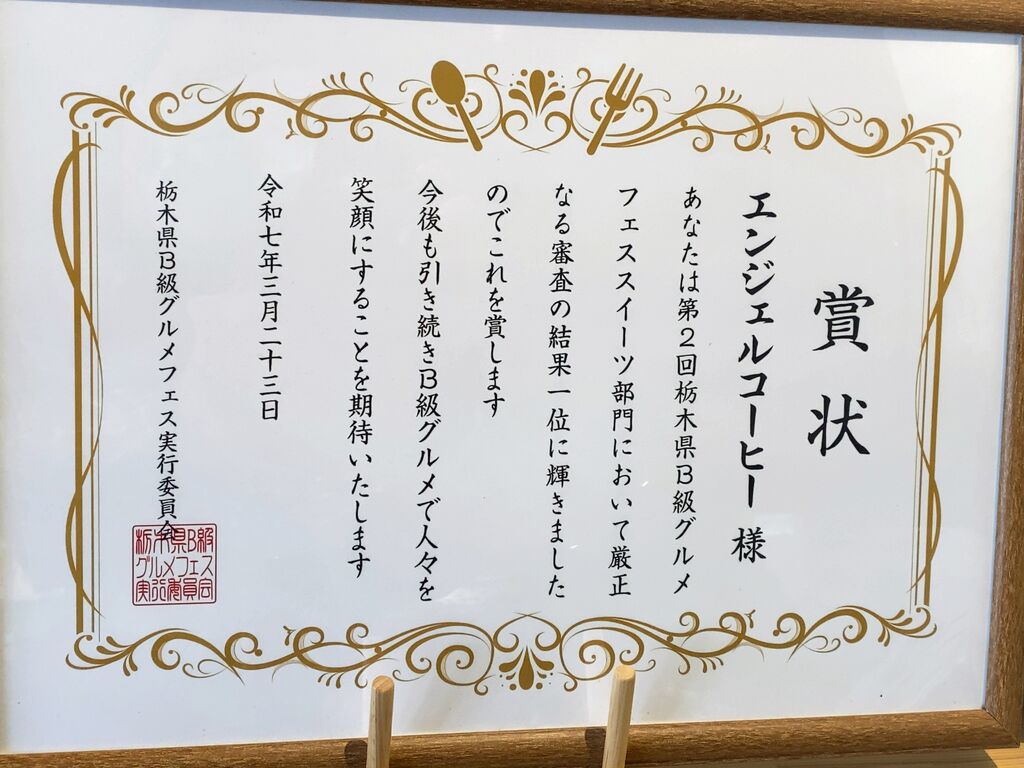 賞状
エンジェルコーヒー 様
あなたは第２回栃木県Ｂ級グルメ
フェススイーツ部門において厳正
なる審査の結果一位に輝きました
のでこれを賞します
今後も引き続きＢ級グルメで人々を
笑顔にすることを期待いたします
令和七年三月二十三日
栃木県Ｂ級グルメフェス実行委員会
栃木県B級
グルメフェス
実行委員会